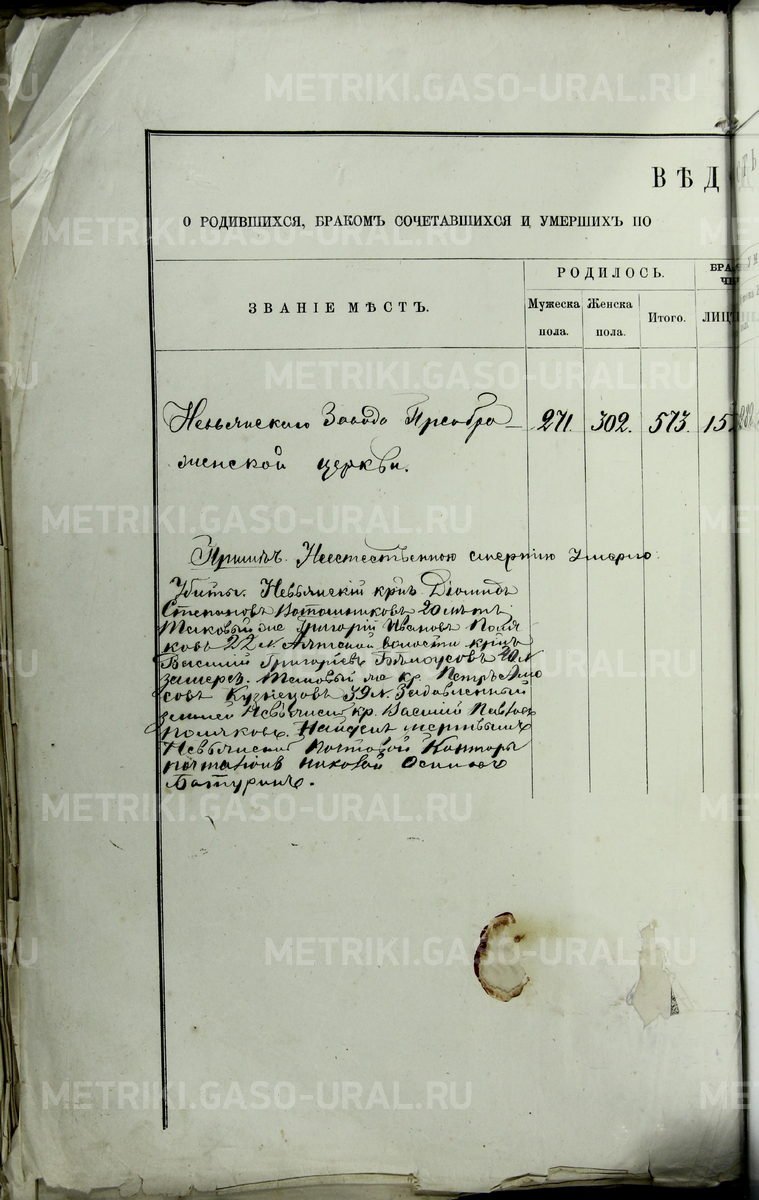 ВѢД
О РОДИВШИХСЯ, БРАКОМЪ СОЧЕТАВШИХСЯ И УМЕРШИХЪ ПО
ЗВАНІЕ МѢСТЪ.
РОДИЛОСЬ.
БРА
Мужеска пола.
Женска пола.
Итого.
ЛИЦЪ
Невьянскаго Завода Преобра-
женской церкви.
271. 302. 573. 15
Примѣч. Неестественною смертію умерло:
Убиты: Невьянскій кр. Діомидъ
Степановъ Ватошниковъ 20 лѣтъ.
Таковый же Григорій Ивановъ Поля
ковъ 22 л. Аятской волости кр.
Василій Григорьевъ Бѣлоусовъ
замерз. Таковый же кр. Петръ
совъ Кузнецовъ 39 л. Задавленный
землей Невьянскій кр. Василій Павловъ
Поляковъ. Найденъ мертвымъ
Невьянской Почтовой Конторы
почталіонъ Николай Осиповъ
Батуринъ.
METRIKI.GASO-URAL.RU